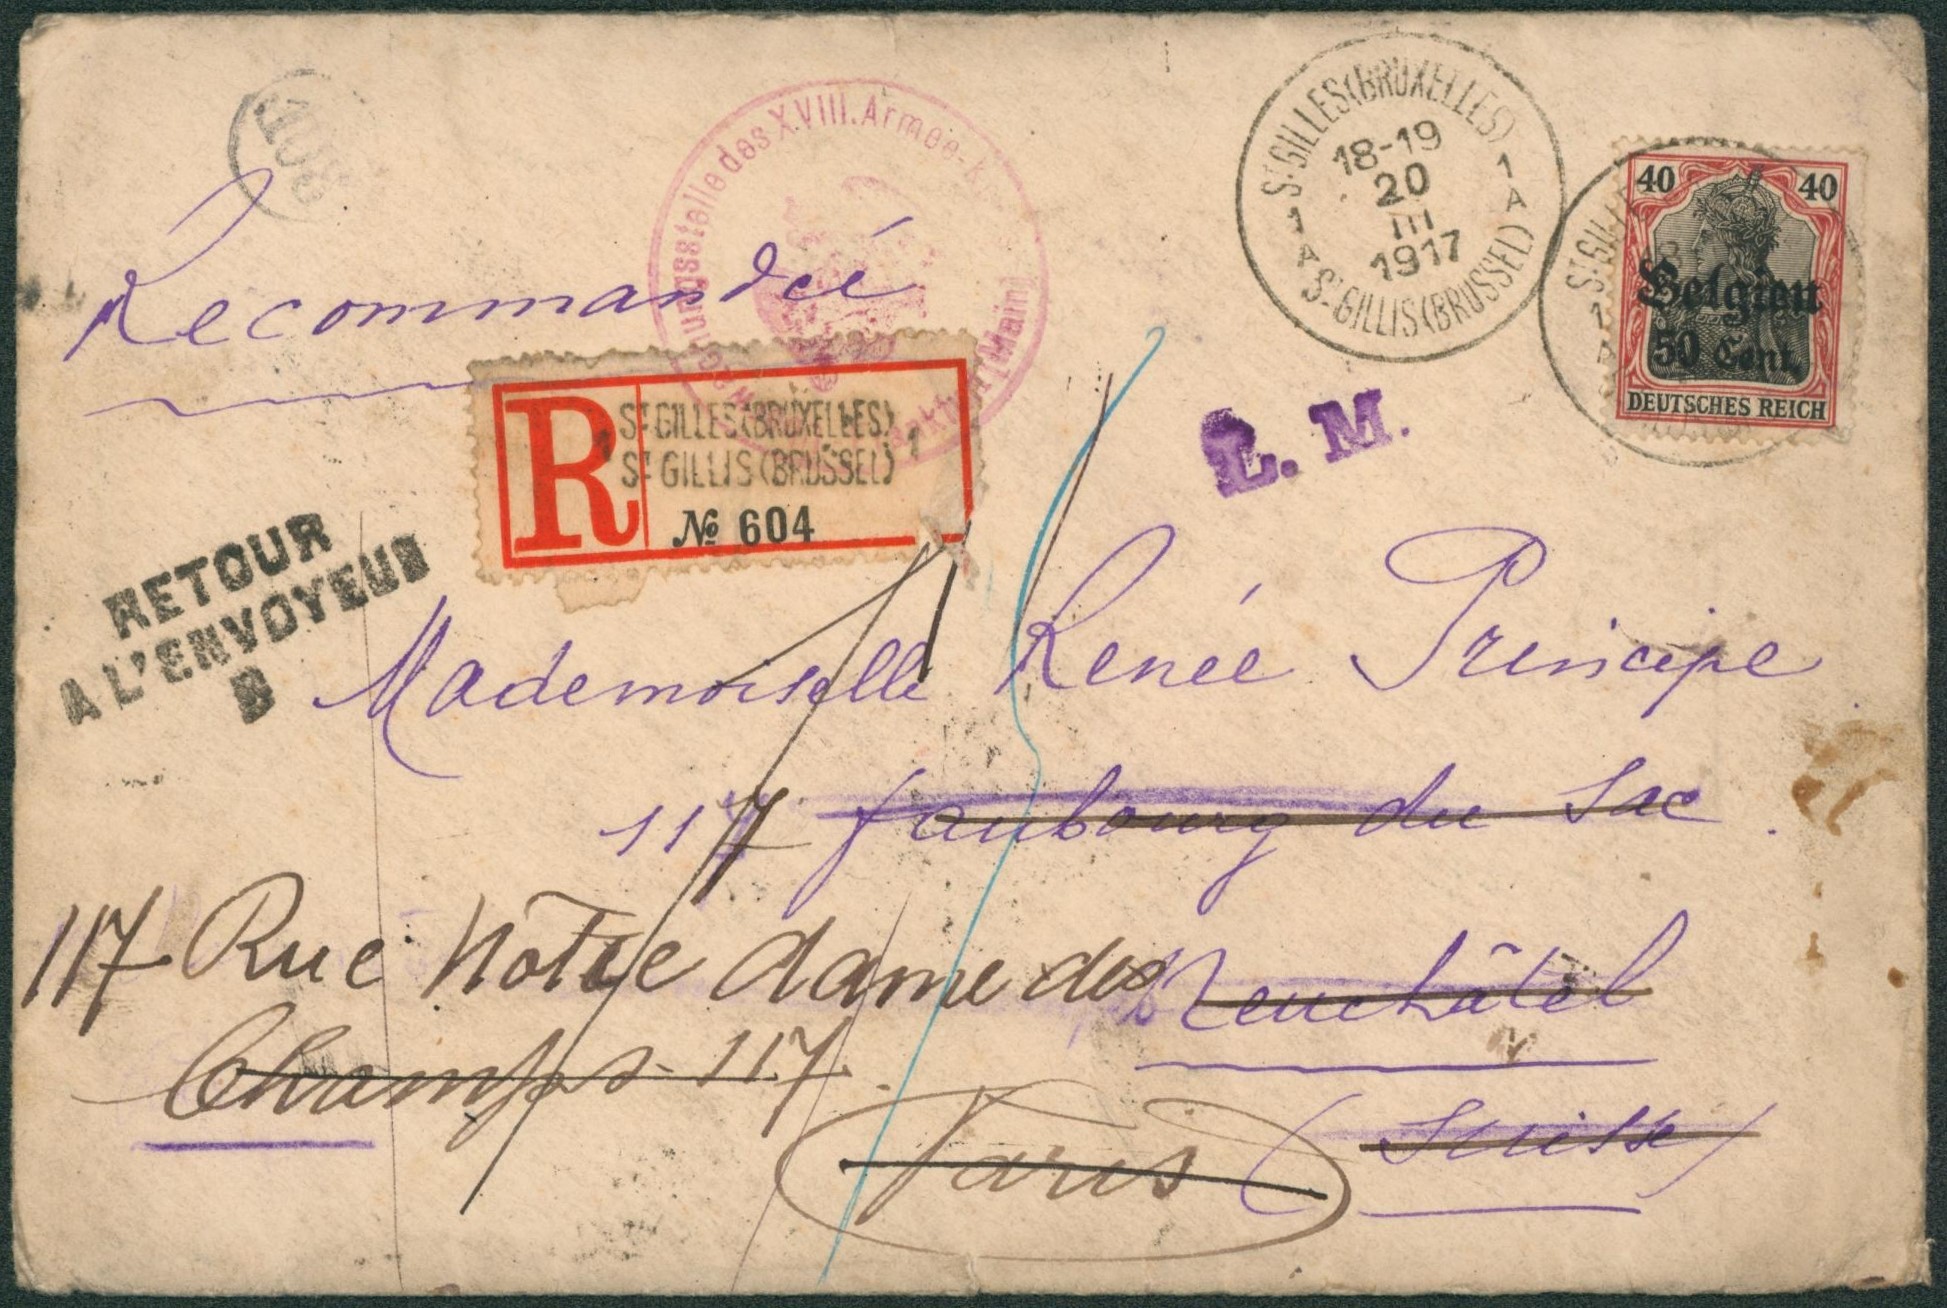 408
Recommandée
Überwachungsstelle des XVIII. Armee-
(Main)
ST GILLES (BRUXELLES)
18-19
20
III
1917
1
A
1
A
ST GILLIS (BRUSSEL)
ST GILL
40 40
Belgien
50 Cent.
DEUTSCHES REICH
R
ST GILLES (BRUXELLES)
1 1
ST GILLIS (BRUSSEL)
№ 604
L. M.
RETOUR
A L'ENVOYEUR
B
Mademoiselle Renée Principe
117 faubourg du Lac.
117 Rue Nôtre dame des
Neuchâtel
Champs - 117.
(Suisse)
Paris